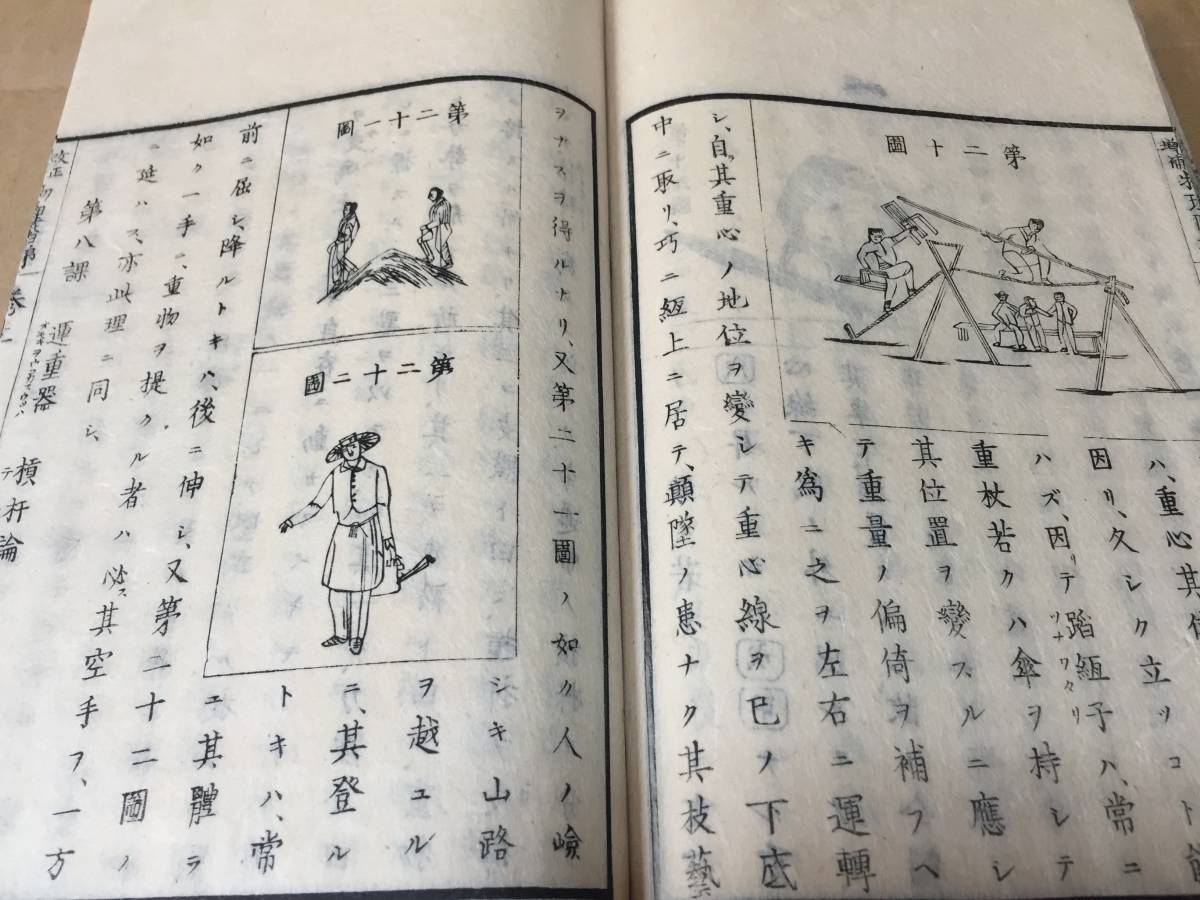 第二十圖
ハ、重心其
因リ、久シク立ツコト
ハズ、因リテ踏絙子ハ、常ニ
ツナワタリ
重杖若クハ傘ヲ持シテ
其位置ヲ變スルニ應シ
テ重量ノ偏倚ヲ補フヘ
キ爲ニ之ヲ左右ニ運轉
シ、自其重心ノ地位ヲ變シテ重心線ヲ已ノ下底
中ニ取リ、巧ニ絙上ニ居テ、顛墜ノ患ナク其枝藝
ヲナスヲ得ルナリ、又第二十一圖ノ如ク人ノ嶮
第二十一圖
第二十二圖
シキ山路
ヲ越ユル
ニ、其登ル
トキハ、常
ニ其體ヲ
前ニ屈シ、降ルトキハ、後ニ伸シ、又第二十二圖ノ
如ク一手ニ、重物ヲ提クル者ハ必ス其空手ヲ、一方
ニ延ハス、亦此理ニ同シ、
第八課 運重器 槓杆論
改正